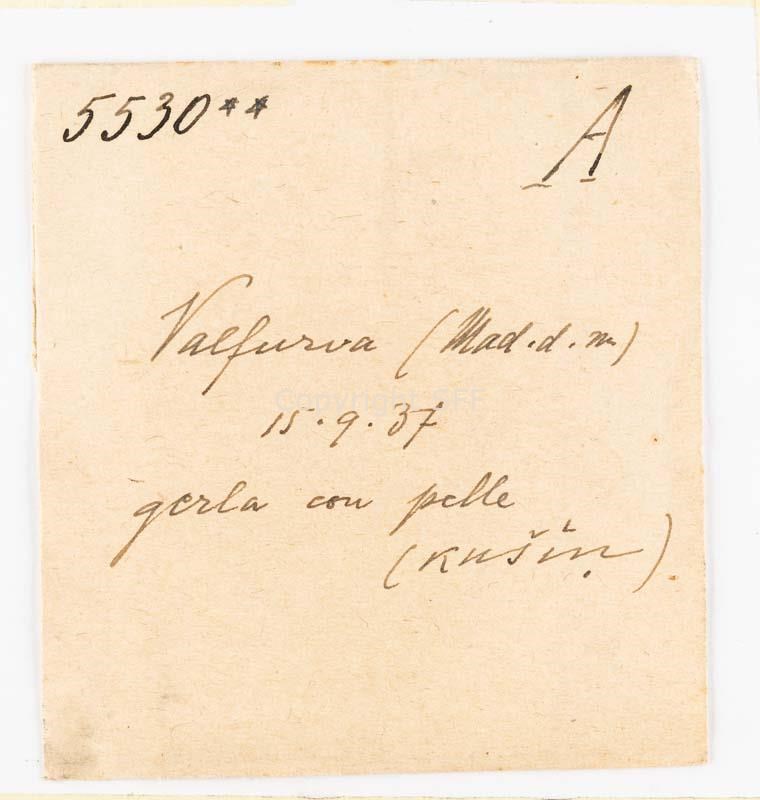 5530** A
Valfurva (Mad.d.m)
Copyright GFF
15.9.37
gerla con pelle
(kušíṇ)